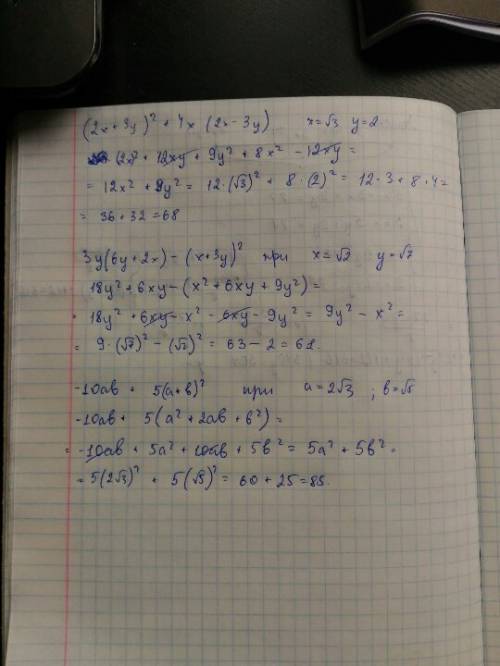 (2x+3y)² + 4x (2x-3y) x=√3 y=2
+ 12xy + 9y² + 8x² - 12xy =
= 12x² + 9y² = 12·(√3)² + 8·(2)² = 12·3 + 8·4 =
= 36+32=68
3y(6y+2x) - (x+3y)² при x=√2 y=√7
18y² + 6xy - (x² + 6xy + 9y²) =
18y² + 6xy - x² - 6xy - 9y² = 9y² - x² =
= 9·(√7)² - (√2)² = 63-2=61.
-10ab + 5(a+b)² при a=2√3 ; b=√5
-10ab + 5(a² + 2ab + b²) =
= -10ab + 5a² + 10ab + 5b² = 5a² + 5b² =
= 5(2√3)² + 5(√5)² = 60+25=85.